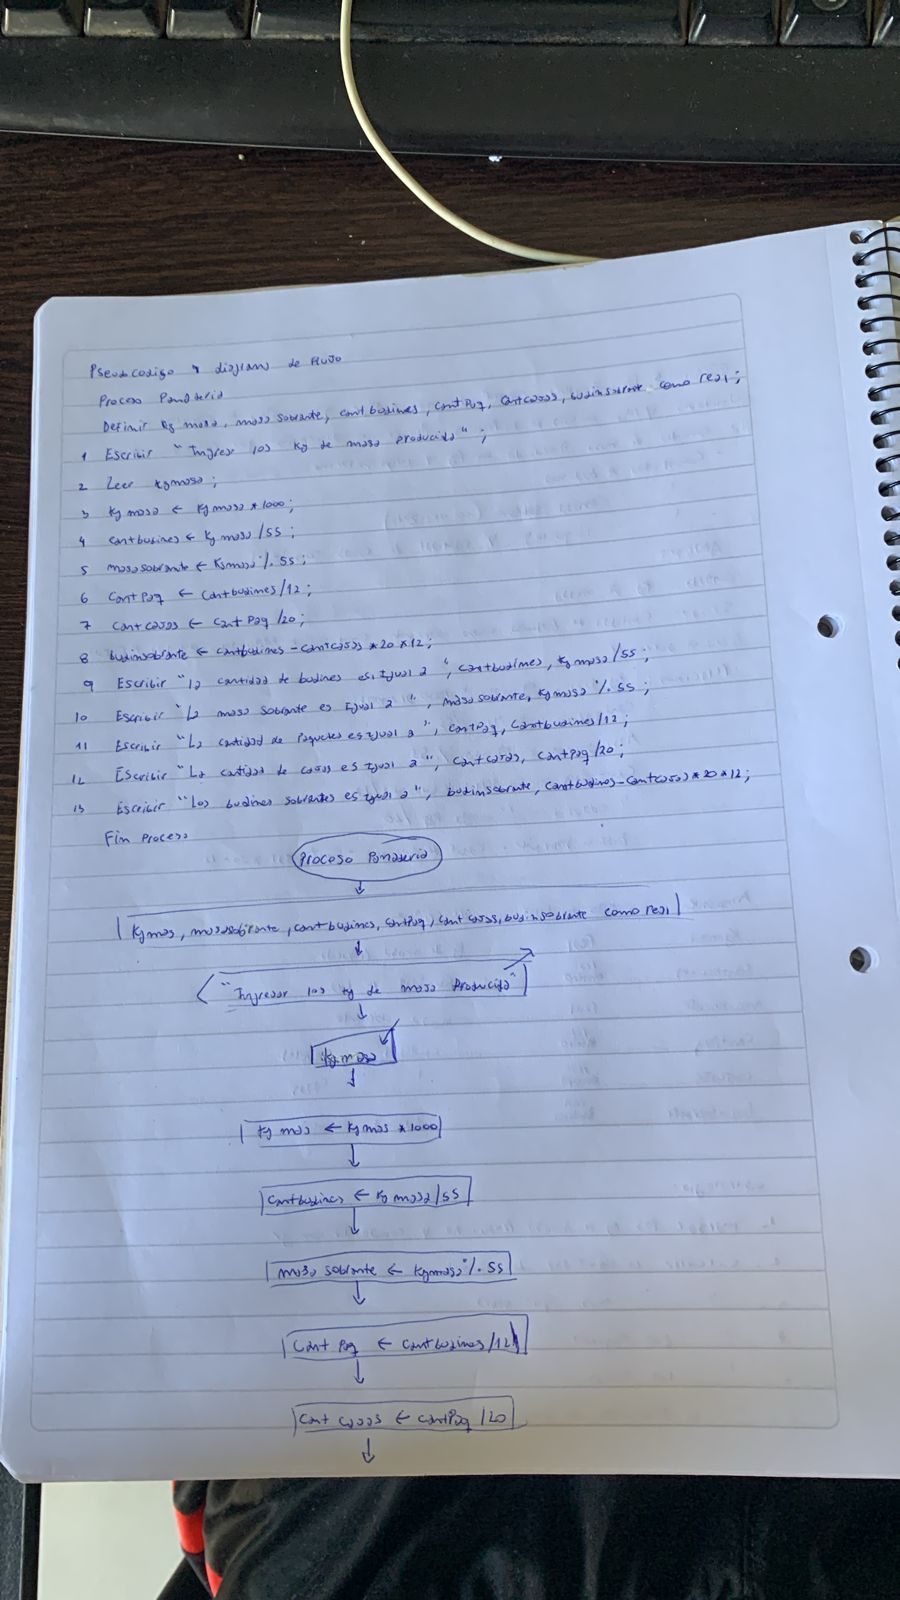 Pseudocodigo y diagrama de Flujo
Proceso Panaderia
Definir Kg masa, masa sobrante, cantbudines, cantPaq, Cantcajas, budinsobrante como real;
1 Escribir "Ingrese los Kg de masa producida";
2 Leer Kgmasa;
3 Kg masa ← Kg masa * 1000;
4 cantbudines ← Kg masa /55;
5 masasobrante ← Kgmasa % 55;
6 CantPaq ← Cantbudines/12;
7 Cantcajas ← Cant Paq /20;
8 budinsobrante ← cantbudines - cantcajas * 20 * 12;
9 Escribir "La cantidad de budines es igual a", cantbudines, Kg masa/55;
10 Escribir "La masa sobrante es igual a", masa sobrante, Kgmasa % 55;
11 Escribir "La cantidad de Paquetes es igual a", CantPaq, Cantbudines/12;
12 Escribir "La catidad de cajas es igual a", Cantcajas, CantPaq/20;
13 Escribir "Los budines sobrantes es igual a", budinsobrante, Cantbudines-Cantcajas * 20 * 12;
Fin Proceso
Proceso Panaderia
↓
Kgmas, masasobrante, cantbudines, CantPaq, Cantcajas, budinsobrante como real
↓
"Ingresar los Kg de masa Producida"
↓
Kg masa
↓
Kg mas ← Kg mas * 1000
↓
Cantbudines ← Kg masa/55
↓
masa sobrante ← Kgmasa % 55
↓
Cant Paq ← Cantbudines/12
↓
Cant cajas ← CantPaq /20
↓